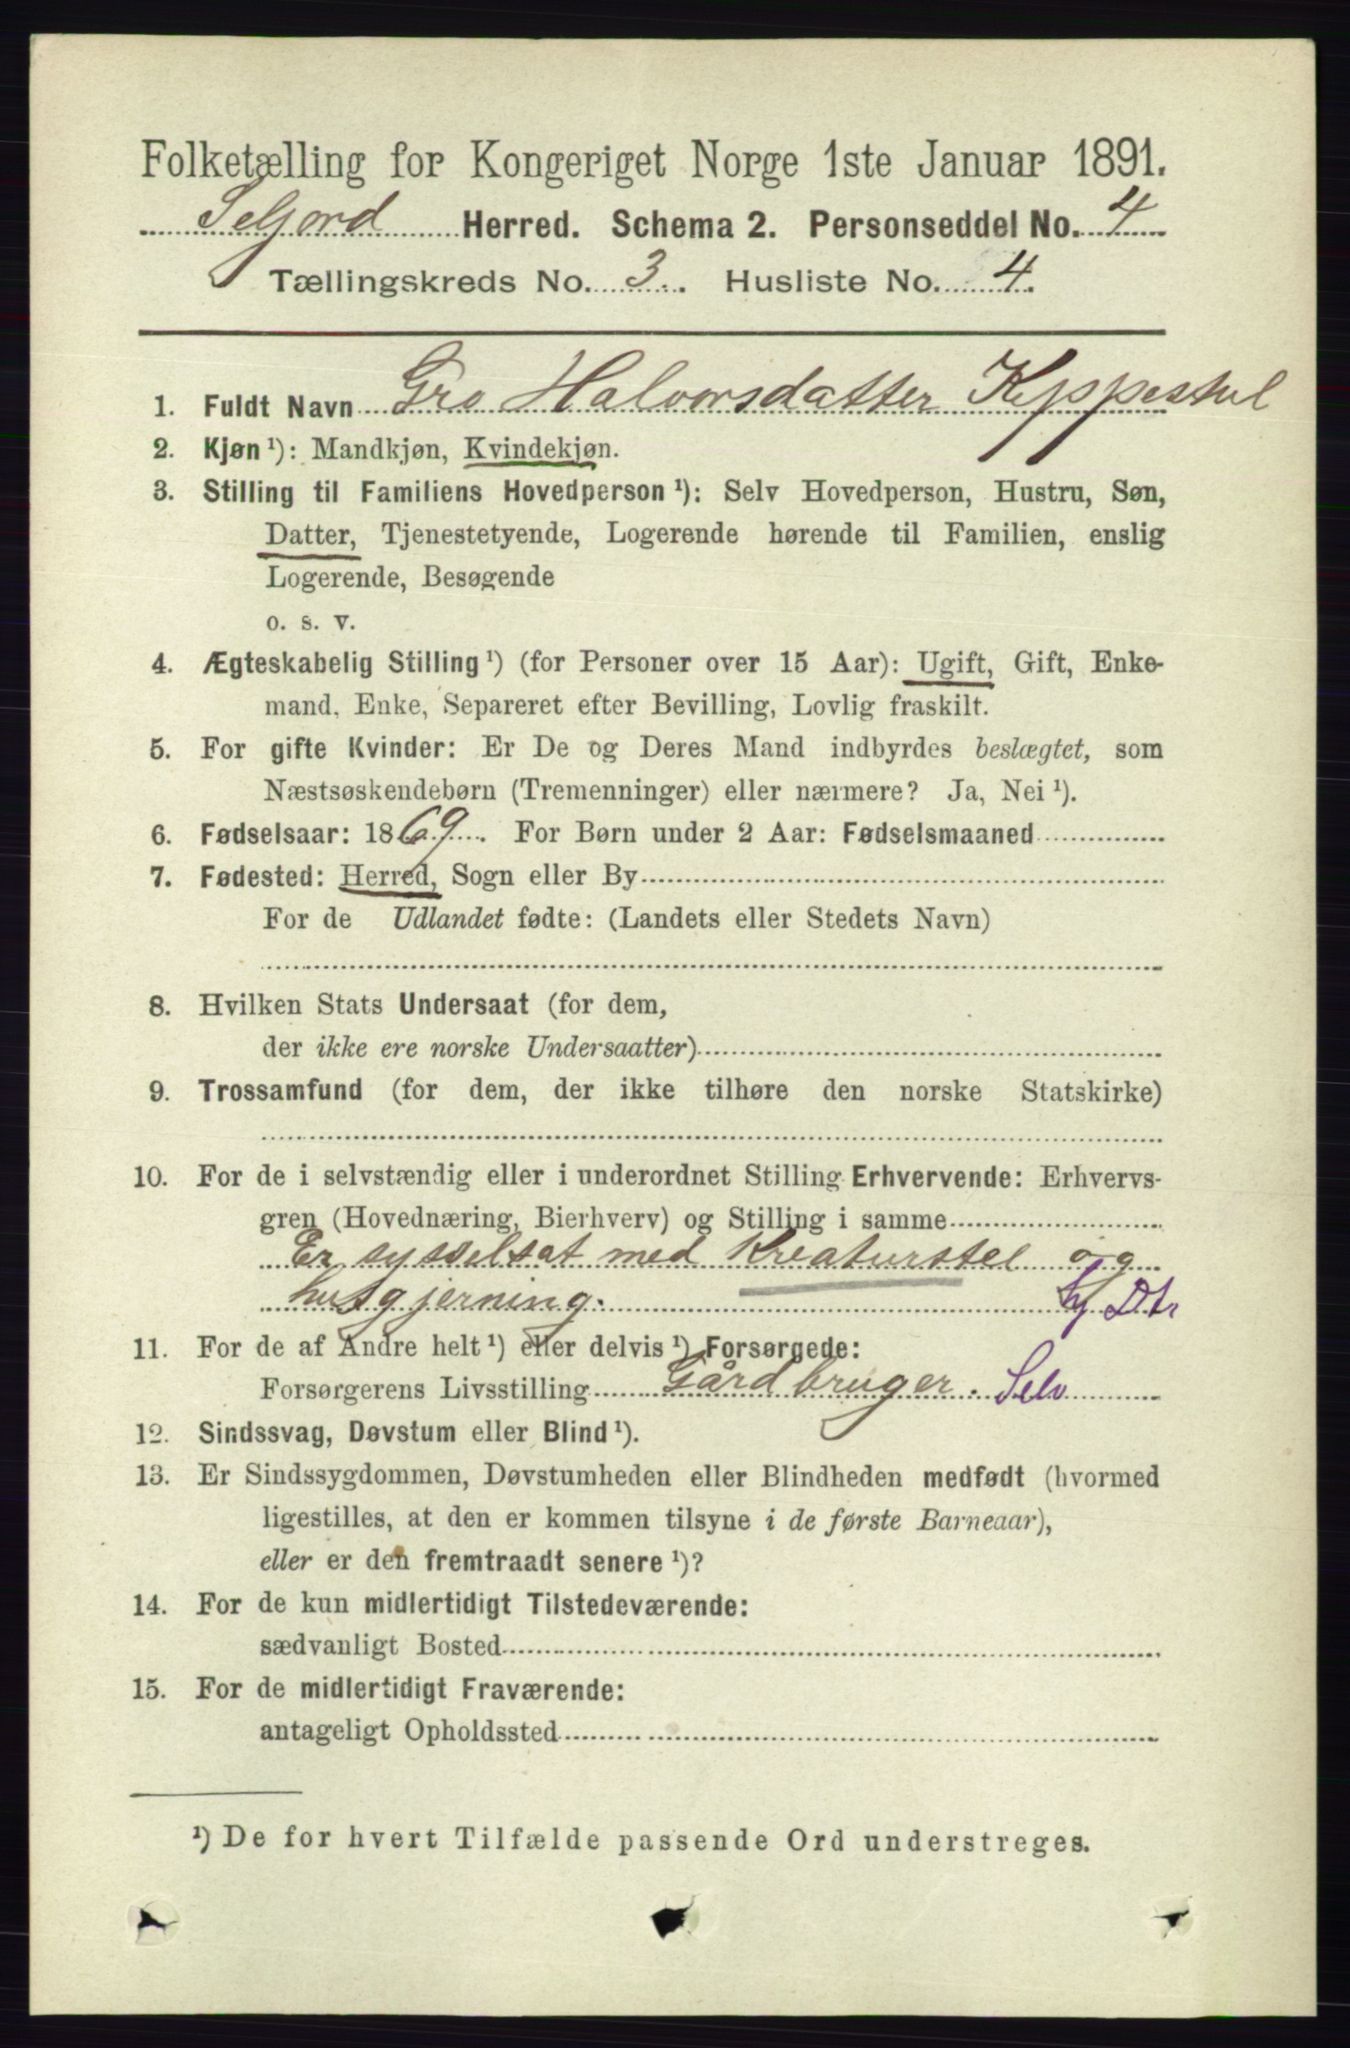 Folketælling for Kongeriget Norge 1ste Januar 1891.
Seljord Herred. Schema 2. Personseddel No. 4
Tællingskreds No. 3. Husliste No. 4.
1. Fuldt Navn Gro Halvorsdatter Kyppestul
2. Kjøn ¹): Mandkjøn, Kvindekjøn.
3. Stilling til Familiens Hovedperson ¹): Selv Hovedperson, Hustru, Søn,
Datter, Tjenestetyende, Logerende hørende til Familien, enslig
Logerende, Besøgende
o. s. v.
4. Ægteskabelig Stilling ¹) (for Personer over 15 Aar): Ugift, Gift, Enke-
mand, Enke, Separeret efter Bevilling, Lovlig fraskilt.
5. For gifte Kvinder: Er De og Deres Mand indbyrdes beslægtet, som
Næstsøskendebørn (Tremenninger) eller nærmere? Ja, Nei ¹).
6. Fødselsaar: 1869. For Børn under 2 Aar: Fødselsmaaned
7. Fødested: Herred, Sogn eller By
For de Udlandet fødte: (Landets eller Stedets Navn)
8. Hvilken Stats Undersaat (for dem,
der ikke ere norske Undersaatter)
9. Trossamfund (for dem, der ikke tilhøre den norske Statskirke)
10. For de i selvstændig eller i underordnet Stilling Erhvervende: Erhvervs-
gren (Hovednæring, Bierhverv) og Stilling i samme
Er sysselsat med Kreaturstel og
husgjerning. hj Dtr
11. For de af Andre helt ¹) eller delvis ¹) Forsørgede:
Forsørgerens Livsstilling Gårdbruger. Selv
12. Sindssvag, Døvstum eller Blind ¹).
13. Er Sindssygdommen, Døvstumheden eller Blindheden medfødt (hvormed
ligestilles, at den er kommen tilsyne i de første Barneaar),
eller er den fremtraadt senere ¹)?
14. For de kun midlertidigt Tilstedeværende:
sædvanligt Bosted
15. For de midlertidigt Fraværende:
antageligt Opholdssted
¹) De for hvert Tilfælde passende Ord understreges.